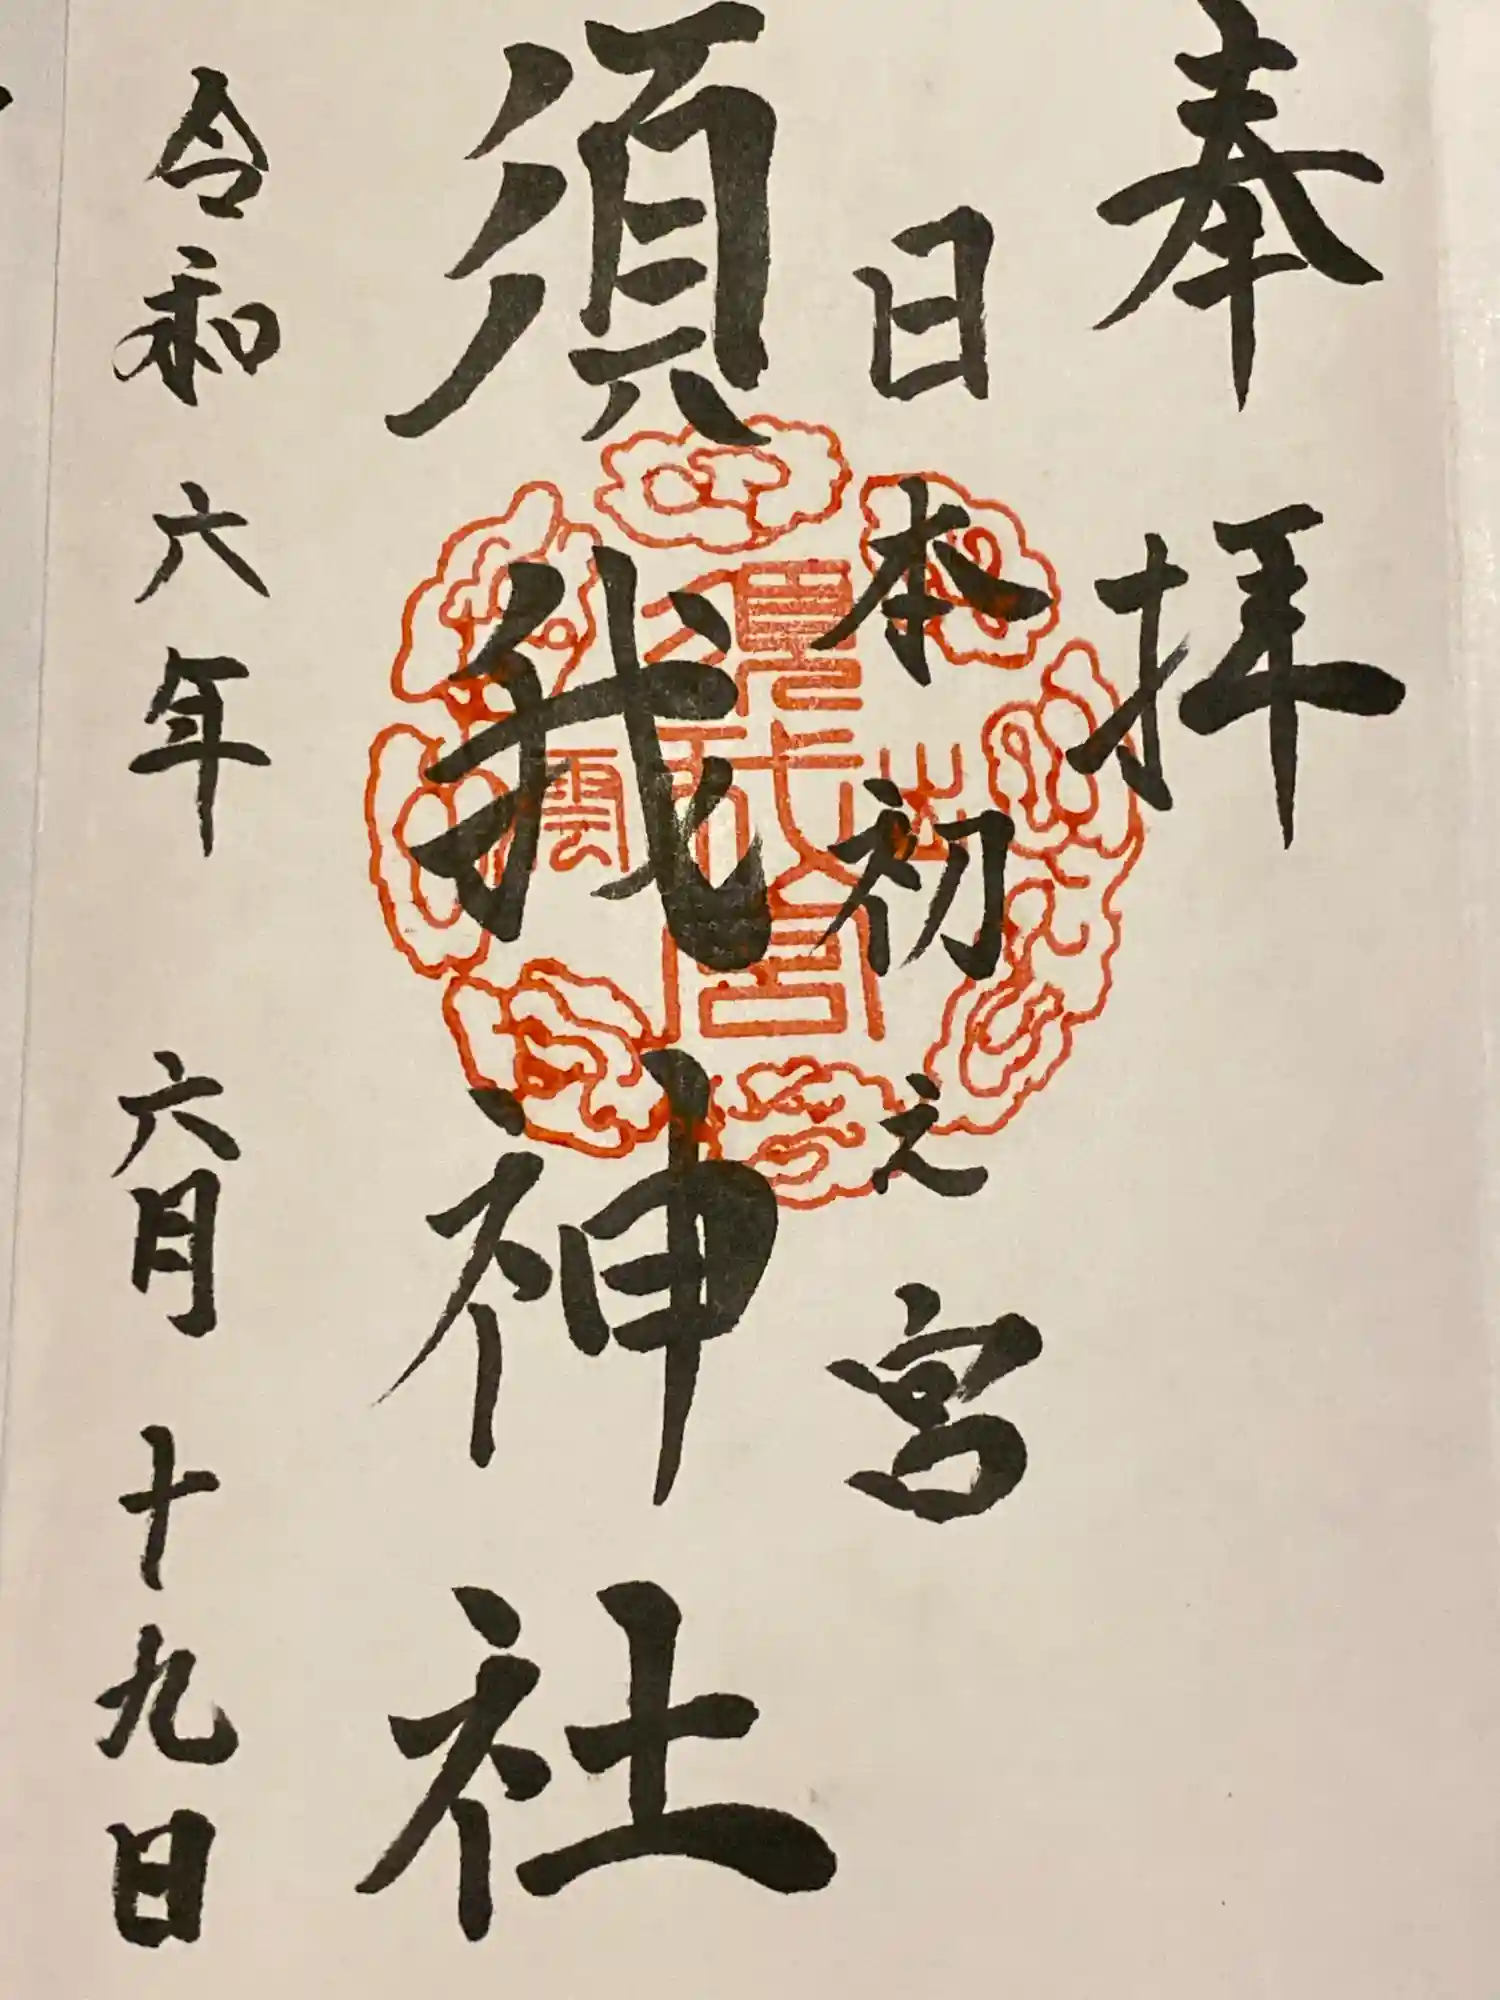 奉拝
日本初之宮
須我神社
令和六年 六月十九日
出雲
須我宮